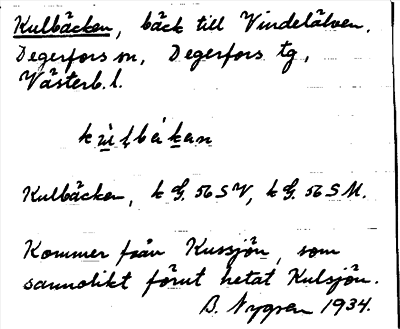 Kulbäcken, bäck till Vindelälven,
Degerfors sn, Degerfors tg,
Västerb. l.
Kulbäcken, k G. 56 S V, k G. 56 S M.
Kommer från Kussjön, som
sannolikt förut hetat Kulsjön.
B. Nygren 1934.